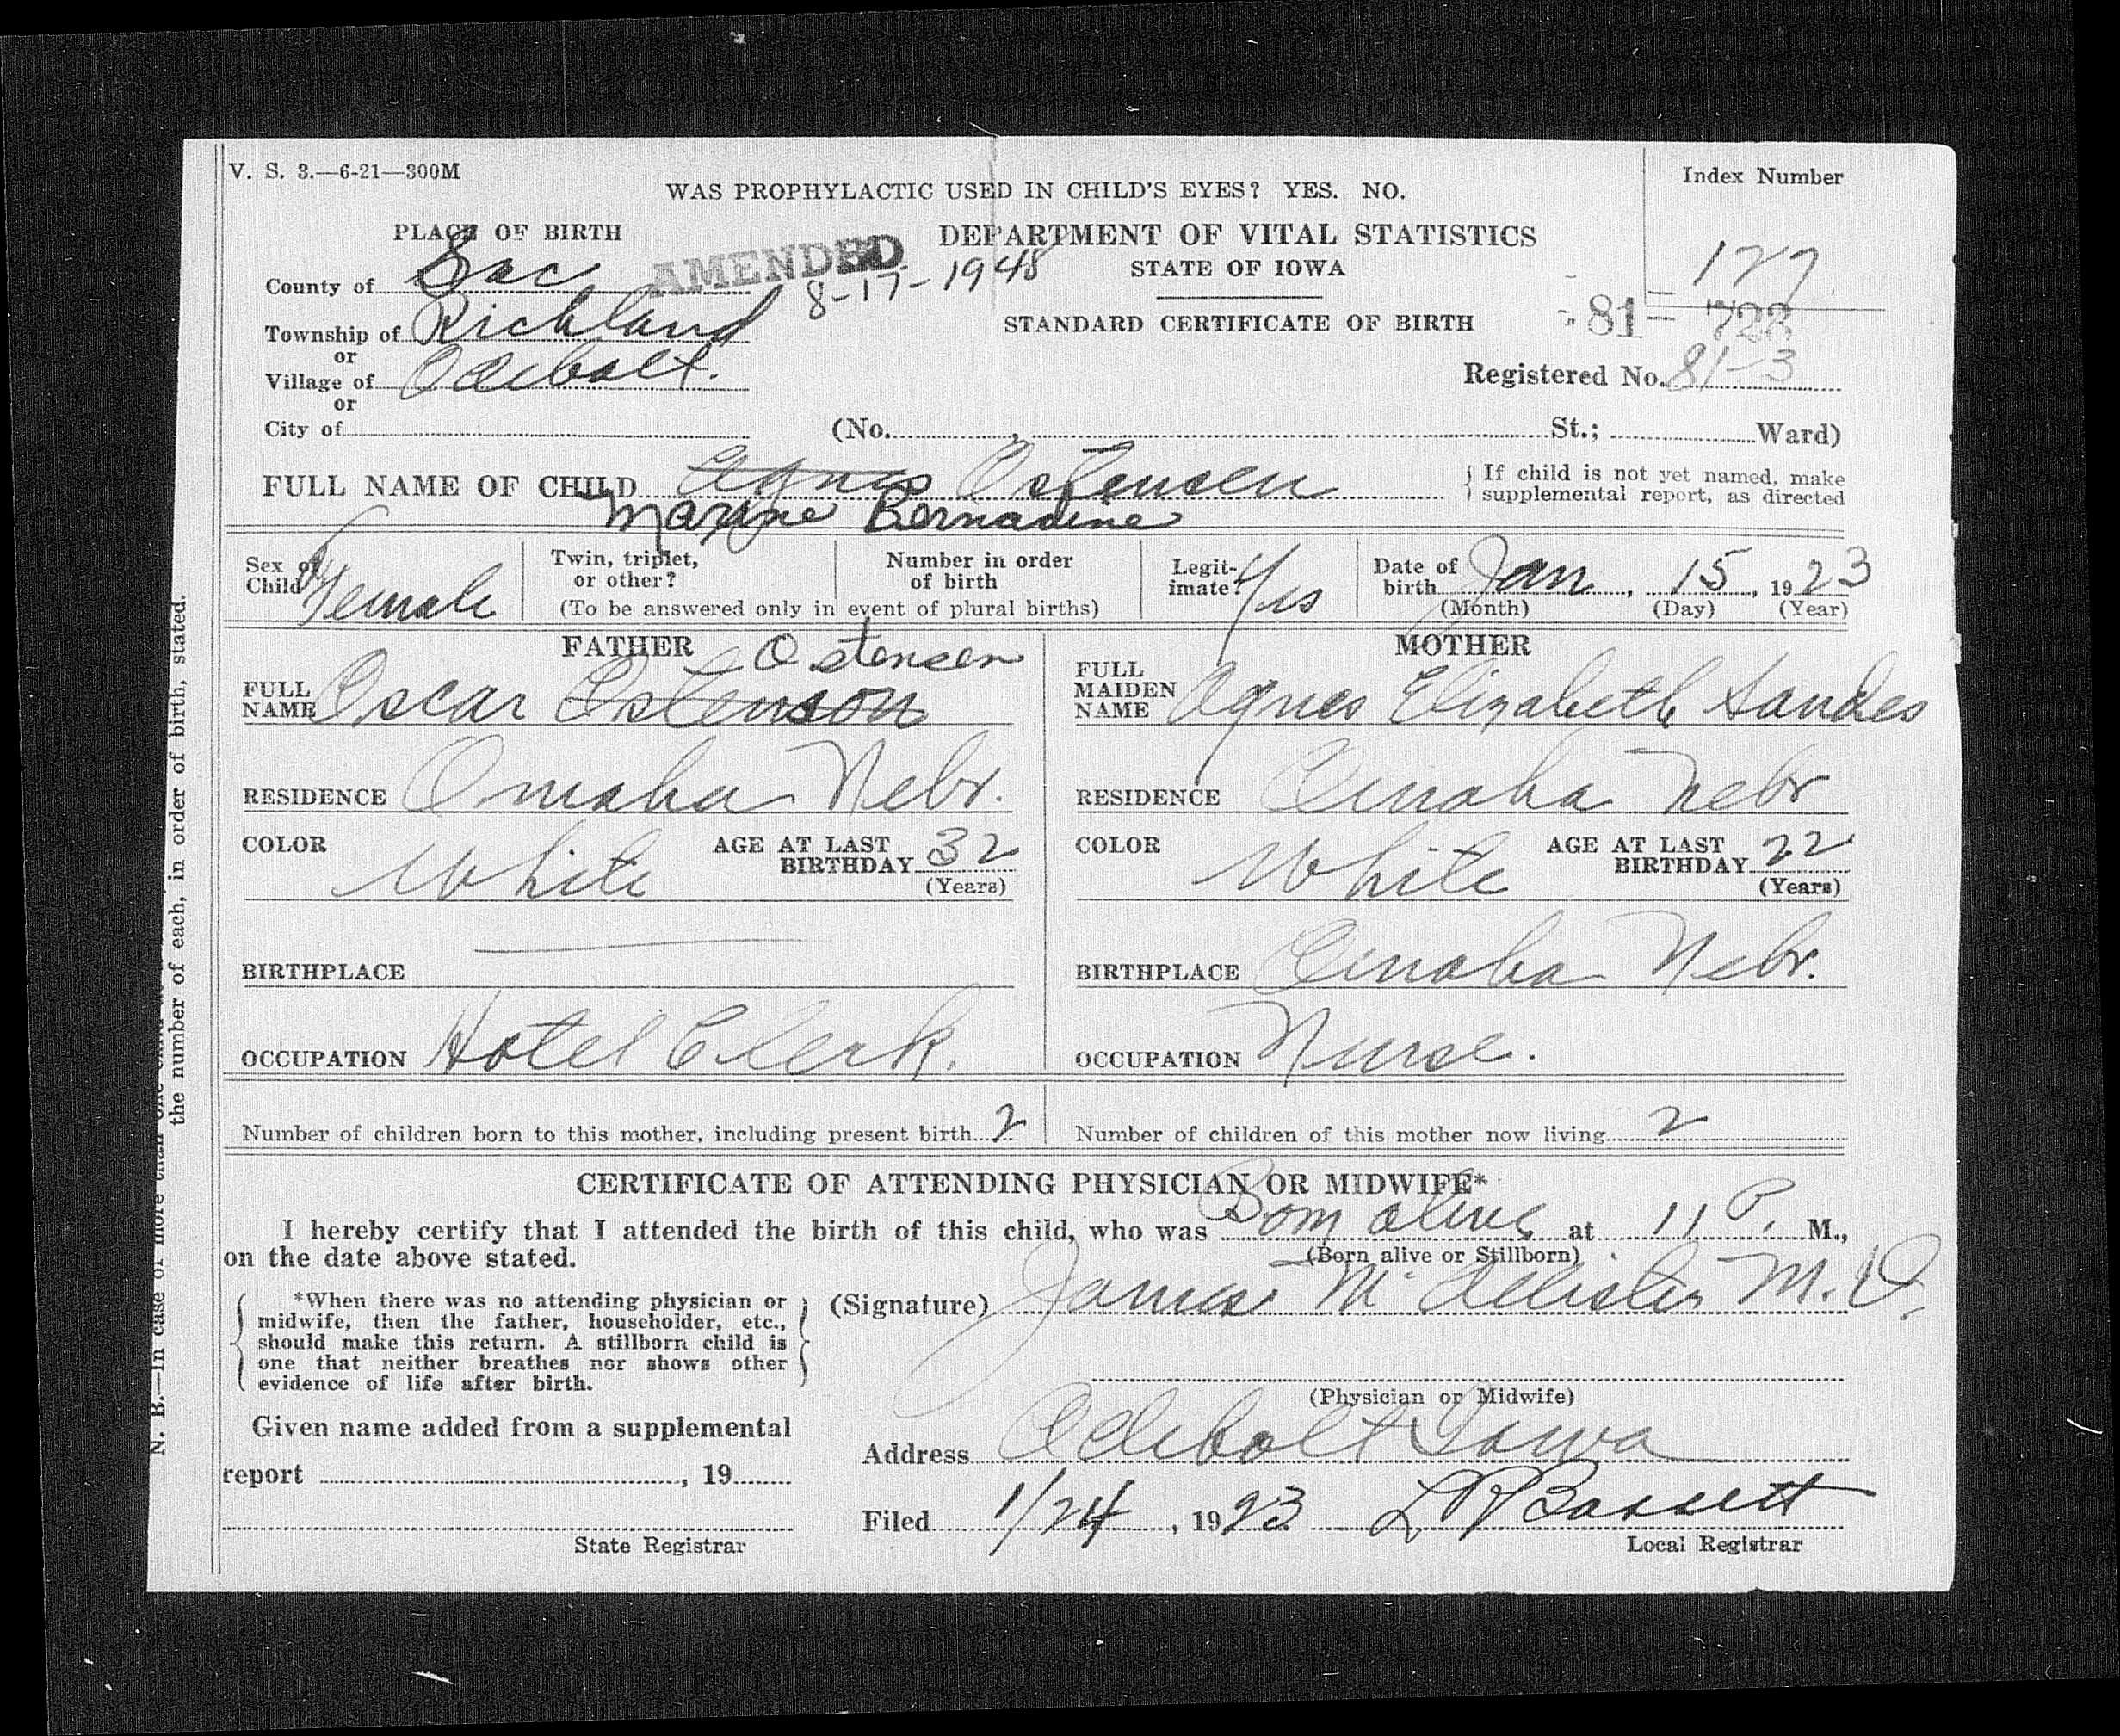 V. S. 3.—6-21—300M
WAS PROPHYLACTIC USED IN CHILD'S EYES? YES. NO.
Index Number
127
PLACE OF BIRTH
DEPARTMENT OF VITAL STATISTICS
STATE OF IOWA
STANDARD CERTIFICATE OF BIRTH
AMENDED
8-17-1948
County of Sac
Township of Richland
or
Village of Odebolt.
or
City of
81-
Registered No. 81-3
(No. , St.; Ward)
FULL NAME OF CHILD Agnes Ostensen
{ If child is not yet named, make
supplemental report, as directed
Maxine Bernadine
Sex of
Child Female
Twin, triplet,
or other?
Number in order
of birth
(To be answered only in event of plural births)
Legit-
imate? Yes
Date of
birth Jan , 15 , 1923
(Month) (Day) (Year)
FATHER
Ostensen
FULL
NAME Oscar Ostenson
RESIDENCE Omaha Nebr.
COLOR White
AGE AT LAST
BIRTHDAY 32
(Years)
BIRTHPLACE
OCCUPATION Hotel Clerk.
MOTHER
FULL
MAIDEN
NAME Agnes Elizabeth Sandes
RESIDENCE Omaha Nebr
COLOR White
AGE AT LAST
BIRTHDAY 22
(Years)
BIRTHPLACE Omaha Nebr.
OCCUPATION Nurse.
Number of children born to this mother, including present birth 2
Number of children of this mother now living 2
CERTIFICATE OF ATTENDING PHYSICIAN OR MIDWIFE*
I hereby certify that I attended the birth of this child, who was Born alive at 11 P. M.,
(Born alive or Stillborn)
on the date above stated.
*When there was no attending physician or
midwife, then the father, householder, etc.,
should make this return. A stillborn child is
one that neither breathes nor shows other
evidence of life after birth.
(Signature) James McAllister M.D.
(Physician or Midwife)
Given name added from a supplemental
report , 19
State Registrar
Address Odebolt Iowa
Filed 1/24 , 1923 L R Bassett
Local Registrar
N. B.—In case of more than one child
the number of each, in order of birth, stated.